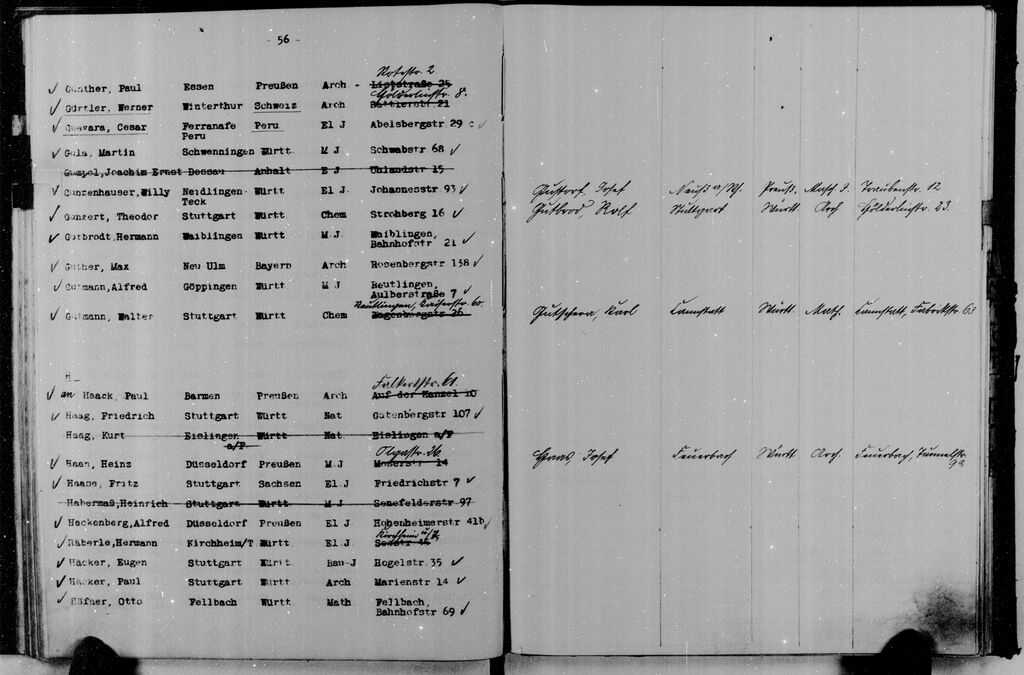 - 56 -
Rotestr. 2
✓ Günther, Paul Essen Preußen Arch - Liststraße 25
Hölderlinstr. 8.
✓ Gürtler, Werner Winterthur Schweiz Arch Sattlerstr 21
✓ Guevara, Cesar Ferranafe Peru El J Abelsbergstr 29 c ✓
Peru
✓ Gula, Martin Schwenningen Württ M J Schwabstr 68 ✓
Gumpel, Joachim Ernst Dessau Anhalt E J Uhlandstr 15
✓ Gunzenhauser, Willy Neidlingen Württ El J Johannesstr 93 ✓
Teck
✓ Gunzert, Theodor Stuttgart Württ Chem Strohberg 16 ✓
✓ Gutbrodt, Hermann Waiblingen Württ M J Waiblingen,
Bahnhofstr 21 ✓
✓ Güther, Max Neu Ulm Bayern Arch Rosenbergstr 138 ✓
✓ Gutmann, Alfred Göppingen Württ M J Reutlingen,
Aulberstraße 7 ✓
Reutlingen, Kaiserstr. 60
✓ Gutmann, Walter Stuttgart Württ Chem Wagenburgstr 26
H
Falkertstr. 60.
✓ an Haack, Paul Barmen Preußen Arch Auf der Kanzel 10
✓ Haag, Friedrich Stuttgart Württ Nat Gutenbergstr 107 ✓
Haag, Kurt Eislingen Württ Nat Eislingen a/F
a/F
Olgastr. 36.
✓ Haas, Heinz Düsseldorf Preußen M J Moserstr 14
✓ Haase, Fritz Stuttgart Sachsen El J Friedrichstr 7 ✓
Habermaß, Heinrich Stuttgart Württ M J Senefelderstr 97
✓ Hackenberg, Alfred Düsseldorf Preußen El J Hohenheimerstr 41b ✓
Kirchheim u/T.
✓ Häberle, Hermann Kirchheim/T Württ El J
✓ Häcker, Eugen Stuttgart Württ Bau-J Hegelstr 35 ✓
✓ Häcker, Paul Stuttgart Württ Arch Marienstr 14 ✓
✓ Häfner, Otto Fellbach Württ Math Fellbach,
Bahnhofstr 69 ✓
Gustorf, Josef Neuß a/Rh. Preuß. Masch J. Traubenstr. 12
Gutbrod, Rolf Stuttgart Württ Arch Hölderlinstr. 23.
Gutschera, Karl Cannstatt Württ. Math. Cannstatt, Fabrikstr 63
Haas, Josef Feuerbach Württ Arch Feuerbach, Tunnelstr